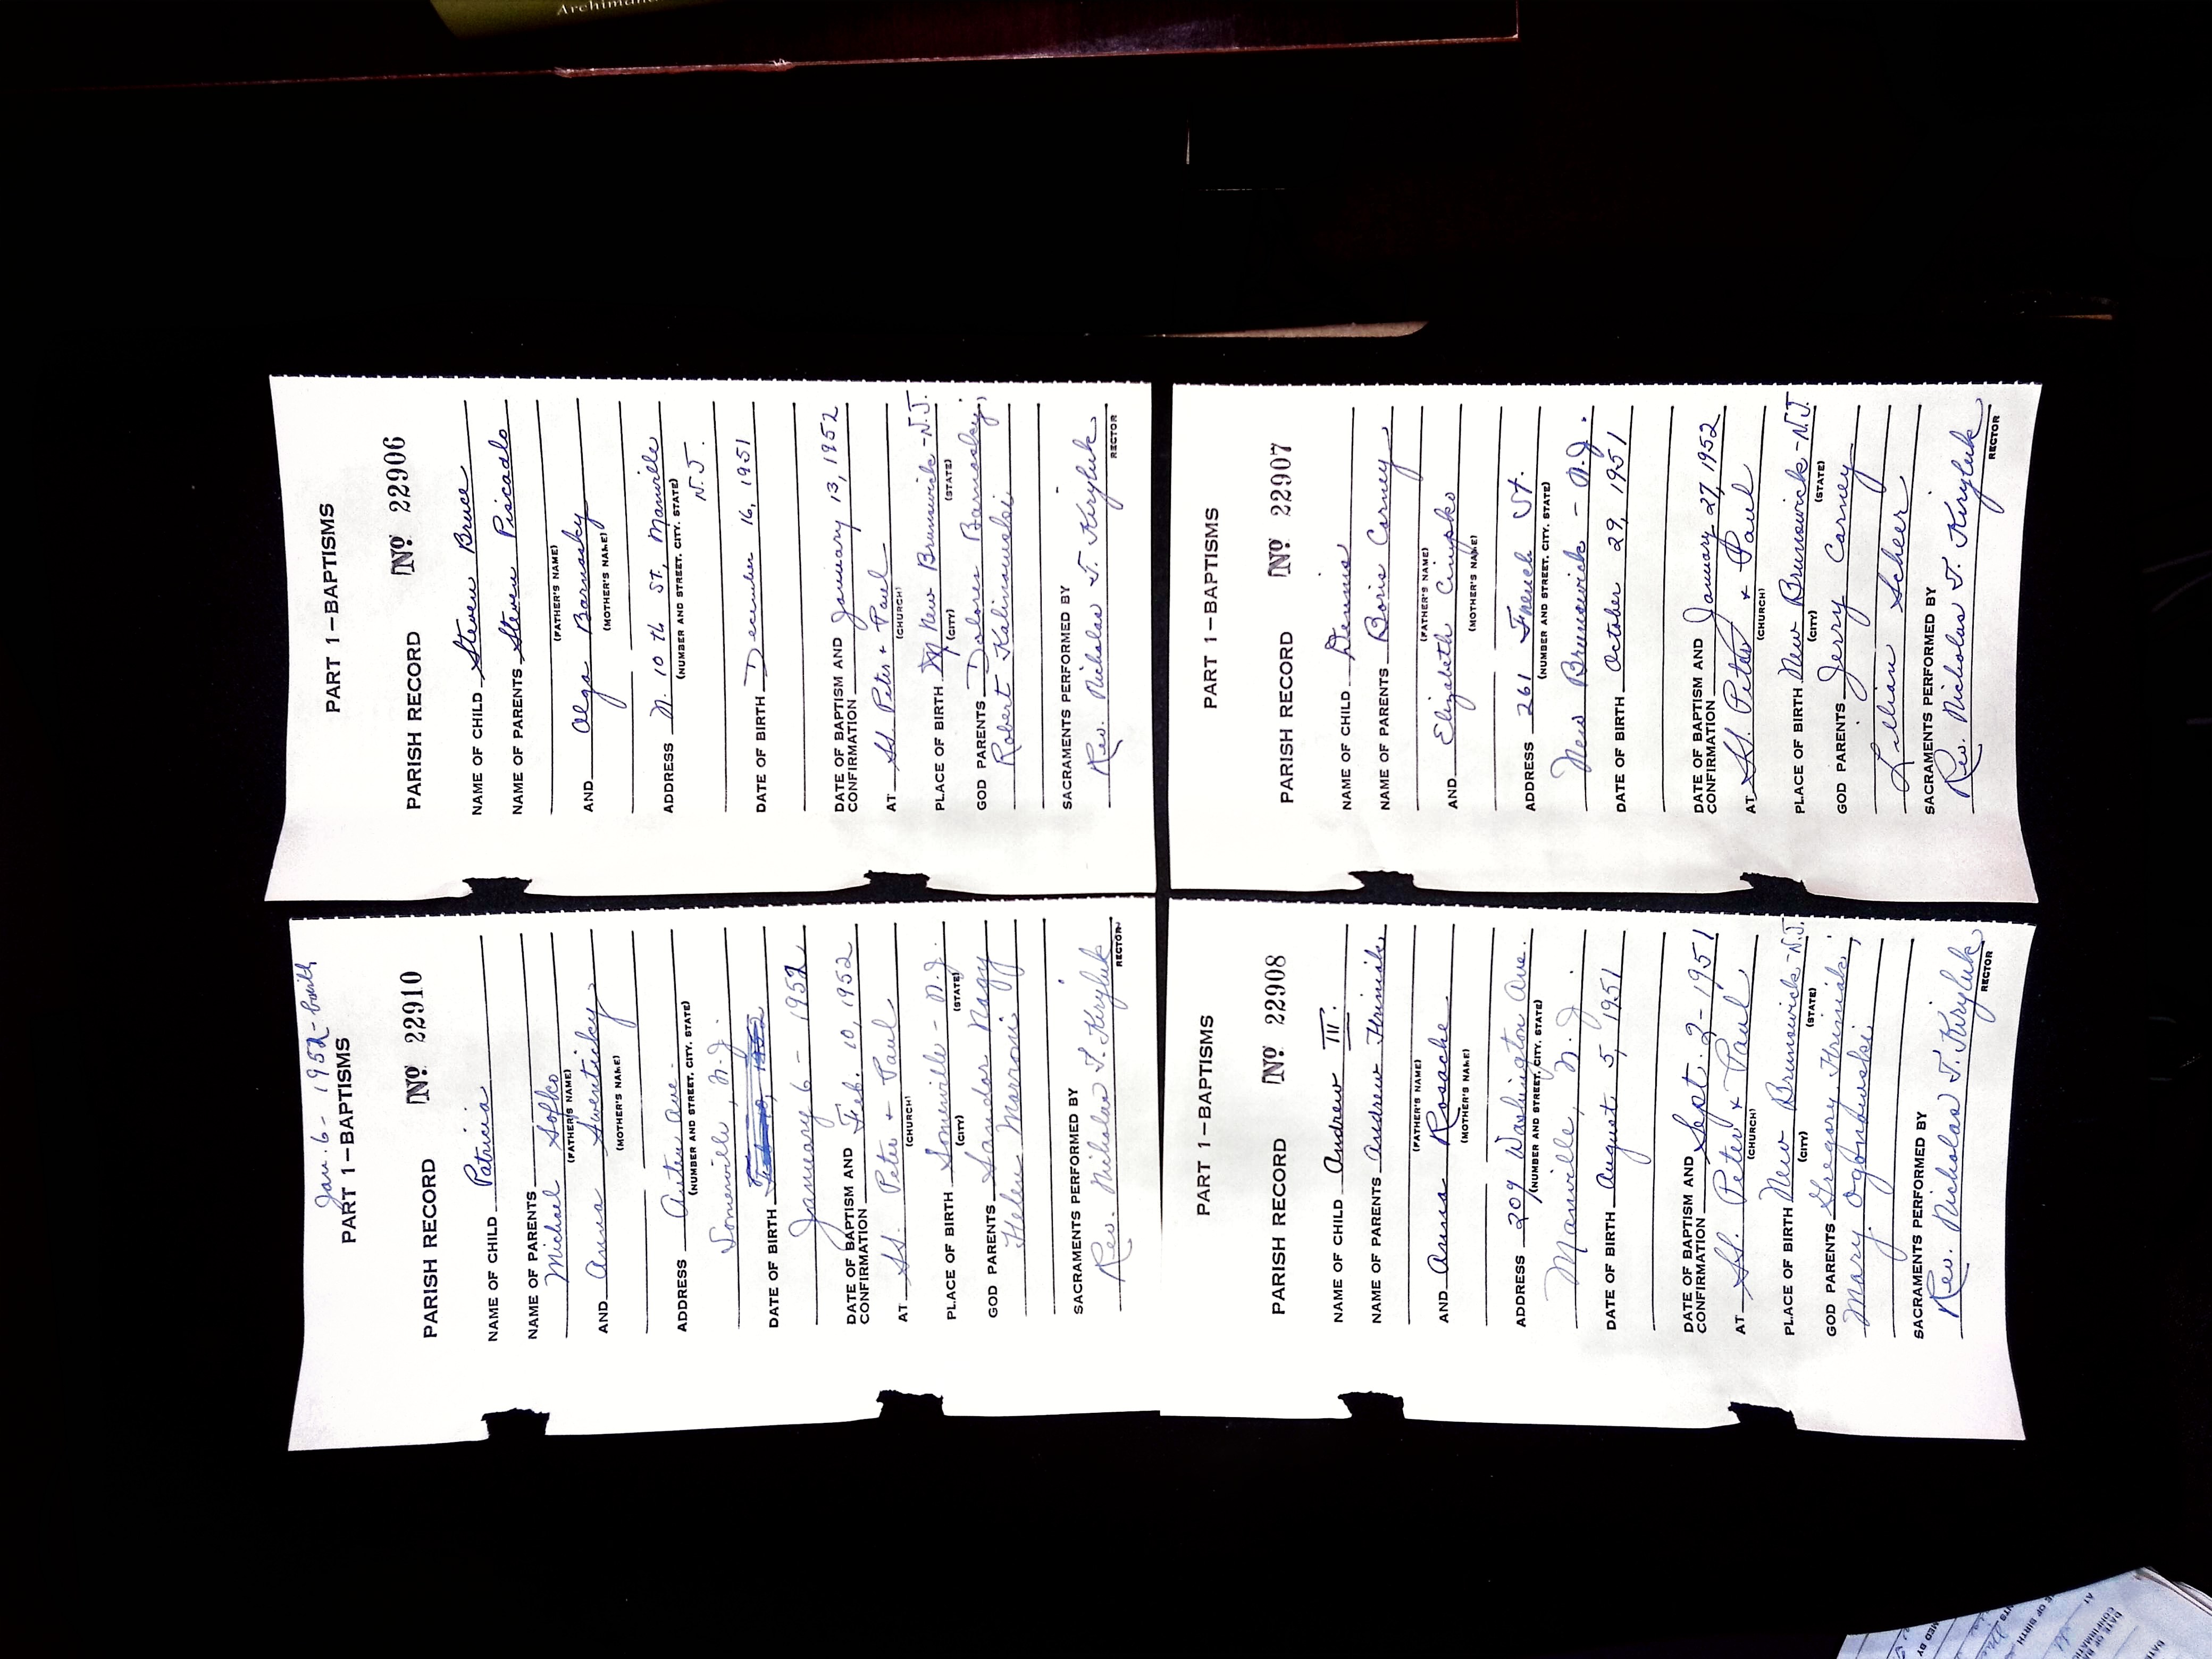 Jan. 6 - 1952 - birth
PART 1—BAPTISMS
PARISH RECORD No 22910
NAME OF CHILD Patricia
NAME OF PARENTS
Michael Sofko
(FATHER'S NAME)
AND Anna Swenticky
(MOTHER'S NAME)
ADDRESS Auten Ave.
(NUMBER AND STREET, CITY, STATE)
Somerville, N.J.
DATE OF BIRTH Feb 10, 1952
January 6 - 1952
DATE OF BAPTISM AND
CONFIRMATION Feb. 10, 1952
AT SS. Peter + Paul
(CHURCH)
PLACE OF BIRTH Somerville - N.J.
(CITY) (STATE)
GOD PARENTS Sandor Nagy
Helen Marroni
SACRAMENTS PERFORMED BY
Rev. Nicholas T. Kiryluk
RECTOR
PART 1—BAPTISMS
PARISH RECORD No 22906
NAME OF CHILD Steven Bruce
NAME OF PARENTS Steven Piscadlo
(FATHER'S NAME)
AND Olga Barnosky
(MOTHER'S NAME)
ADDRESS N. 10 th St., Manville
(NUMBER AND STREET, CITY, STATE)
N.J.
DATE OF BIRTH December 16, 1951
DATE OF BAPTISM AND
CONFIRMATION January 13, 1952
AT SS. Peter + Paul
(CHURCH)
PLACE OF BIRTH New Brunswick - N.J.
(CITY) (STATE)
GOD PARENTS Dolores Barnosky;
Robert Kalinowski
SACRAMENTS PERFORMED BY
Rev. Nicholas T. Kiryluk
RECTOR
PART 1—BAPTISMS
PARISH RECORD No 22908
NAME OF CHILD Andrew III.
NAME OF PARENTS Andrew Hriniak
(FATHER'S NAME)
AND Anna Rosache
(MOTHER'S NAME)
ADDRESS 209 Washington Ave.
(NUMBER AND STREET, CITY, STATE)
Manville, N.J.
DATE OF BIRTH August 5, 1951
DATE OF BAPTISM AND
CONFIRMATION Sept. 2 - 1951
AT SS. Peter + Paul
(CHURCH)
PLACE OF BIRTH New Brunswick - N.J.
(CITY) (STATE)
GOD PARENTS Gregory Hriniak;
Mary Ogonowski
SACRAMENTS PERFORMED BY
Rev. Nicholas T. Kiryluk
RECTOR
PART 1—BAPTISMS
PARISH RECORD No 22907
NAME OF CHILD Dennis
NAME OF PARENTS Boris Carney
(FATHER'S NAME)
AND Elizabeth Cimpko
(MOTHER'S NAME)
ADDRESS 261 French St.
(NUMBER AND STREET, CITY, STATE)
New Brunswick - N.J.
DATE OF BIRTH October 29, 1951
DATE OF BAPTISM AND
CONFIRMATION January 27, 1952
AT SS. Peter + Paul
(CHURCH)
PLACE OF BIRTH New Brunswick - N.J.
(CITY) (STATE)
GOD PARENTS Jerry Carney
Lillian Scheer
SACRAMENTS PERFORMED BY
Rev. Nicholas T. Kiryluk
RECTOR